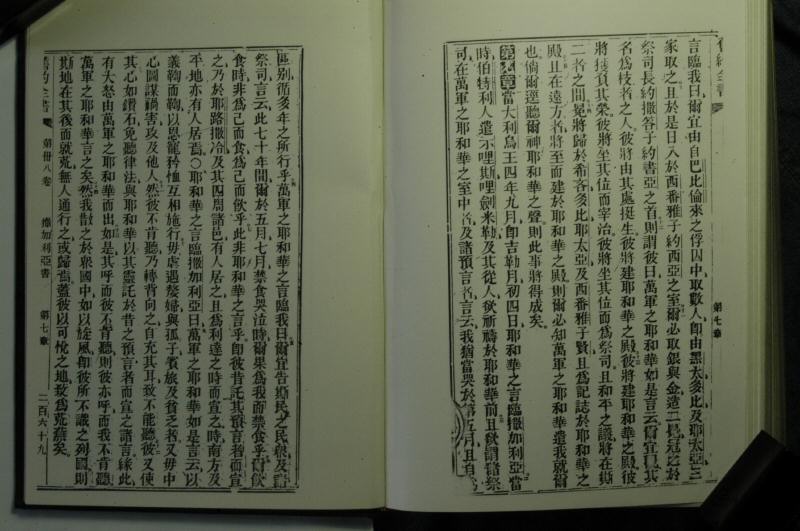 約全書
第七章
言臨我曰爾宜由自巴比倫來之俘囚中取數人卽由黑太多比及耶太亞三
家取之且於是日入於西番雅子約西亞之室爾必取銀與金造二冕冠之於
祭司長約撒答子約書亞之首則謂彼曰萬軍之耶和華如是言云爾宜見其
名爲枝者之人彼將由其處挺生彼將建耶和華之殿彼將建耶和華之殿彼
將接負其榮彼將坐其位而宰治彼將坐其位而爲祭司且和平之議將在斯
二者之間冕將歸於希吝多比耶太亞及西番雅子賢且爲記誌於耶和華之
殿且在遠方者將至而建於耶和華之殿則爾必知萬軍之耶和華遣我就爾
也倘爾逕聽爾神耶和華之聲則此事將得成矣
第七章當大利烏王四年九月卽吉勒月初四日耶和華之言臨撒加利亞當
時伯特利人遣示哩斯哩劍米勒及其從人欲祈禱於耶和華前且欲謂諸祭
司在萬軍之耶和華之室中者及諸預言者言云我猶當哭於第五月且自
區別循多年之所行乎萬軍之耶和華之言臨我曰爾宜告斯民之民衆及諸
祭司言云此七十年間爾於五月七月禁食哭泣時爾果爲我而禁食乎爾飲
食時非爲己而食爲己而飲乎此非耶和華之言乎卽彼昔託其預言者而宣
之乃於耶路撒冷及其四周諸邑有人居之且爲利達之時而宣之時南方及
平地亦有人居焉〇耶和華之言臨撒加利亞曰萬軍之耶和華如是言云以
義鞫而鞫以恩寵矜恤互相施行毋虐遇嫠婦與孤子賓旅及貧乏者又毋中
心圖謀禍害攻及他人然彼不肯聽乃轉背向之自充其耳致不能聽彼又使
其心如鑽石免聽律法與耶和華以其靈託於昔之預言者而宣之諸言緣此
有大怒由萬軍之耶和華而出如是其呼而彼不肯聽則彼亦呼而我不肯聽
萬軍之耶和華言之矣然我散之於衆國中如以旋風卽彼所不識之列國則
斯地在其後而就荒無人通行之或歸焉蓋彼以可悅之地致爲荒蕪矣
舊約全書 第卅八卷 撒加利亞書 第七章 二百六十九